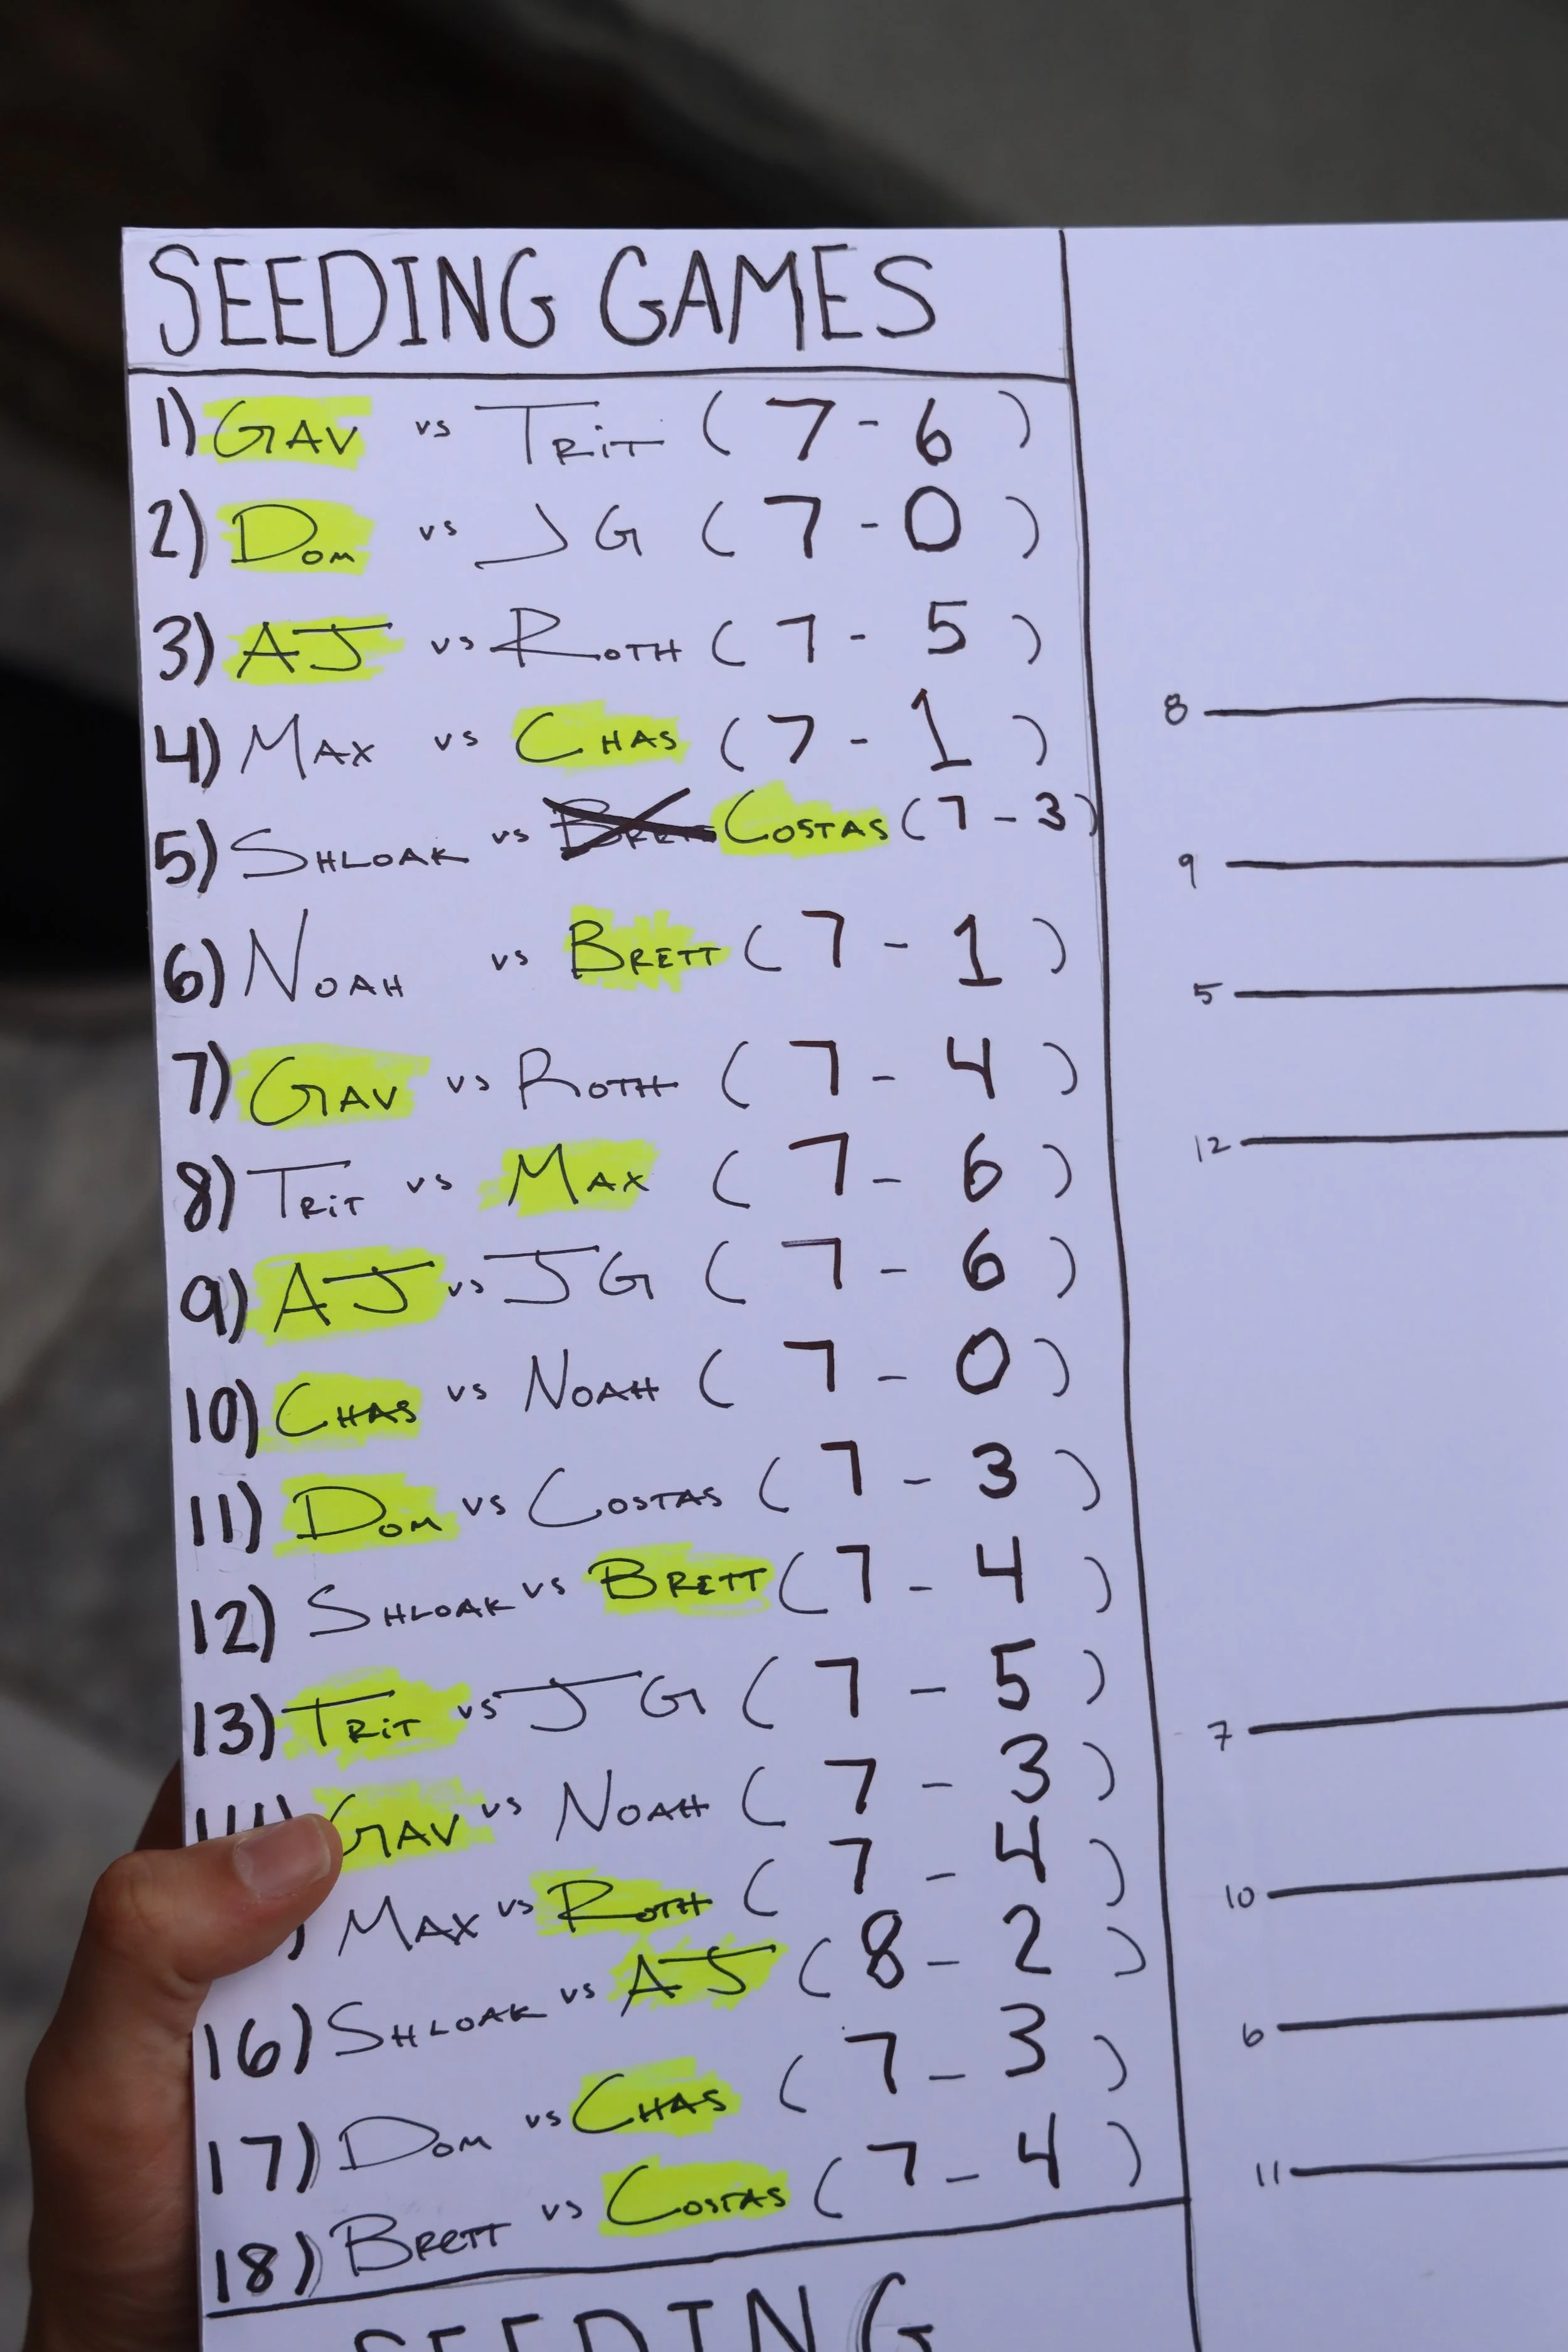 SEEDING GAMES
1) GAV vs TRiT ( 7 - 6 )
2) DOM vs JG ( 7 - 0 )
3) AJ vs ROTH ( 7 - 5 )
4) MAX vs CHAS ( 7 - 1 )
5) SHLOAK vs BRETT COSTAS ( 7 - 3 )
6) NOAH vs BRETT ( 7 - 1 )
7) GAV vs ROTH ( 7 - 4 )
8) TRiT vs MAX ( 7 - 6 )
9) AJ vs JG ( 7 - 6 )
10) CHAS vs NOAH ( 7 - 0 )
11) DOM vs COSTAS ( 7 - 3 )
12) SHLOAK vs BRETT ( 7 - 4 )
13) TRiT vs JG ( 7 - 5 )
14) GAV vs NOAH ( 7 - 3 )
) MAX vs ROTH ( 7 - 4 )
16) SHLOAK vs AJ ( 8 - 2 )
17) DOM vs CHAS ( 7 - 3 )
18) BRETT vs COSTAS ( 7 - 4 )
SEEDING
8
9
5
12
7
10
6
11